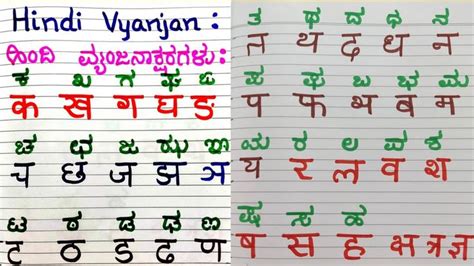 Hindi Vyanjan :
ಹಿಂದಿ ವ್ಯಂಜನಾಕ್ಷರಗಳು:
ಕ ಖ ಗ ಘ ಙ
क ख ग घ ङ
ಚ ಛ ಜ ಝ ಞ
च छ ज झ ञ
ಟ ಠ ಡ ಢ ಣ
ट ठ ड ढ ण
ತ ಥ ದ ಧ ನ
त थ द ध न
ಪ ಫ ಬ ಭ ಮ
प फ भ ब म
ಯ ರ ಲ ವ ಶ
य र ल व श
ಷ ಸ ಹ
ष स ह क्ष त्र ज्ञ